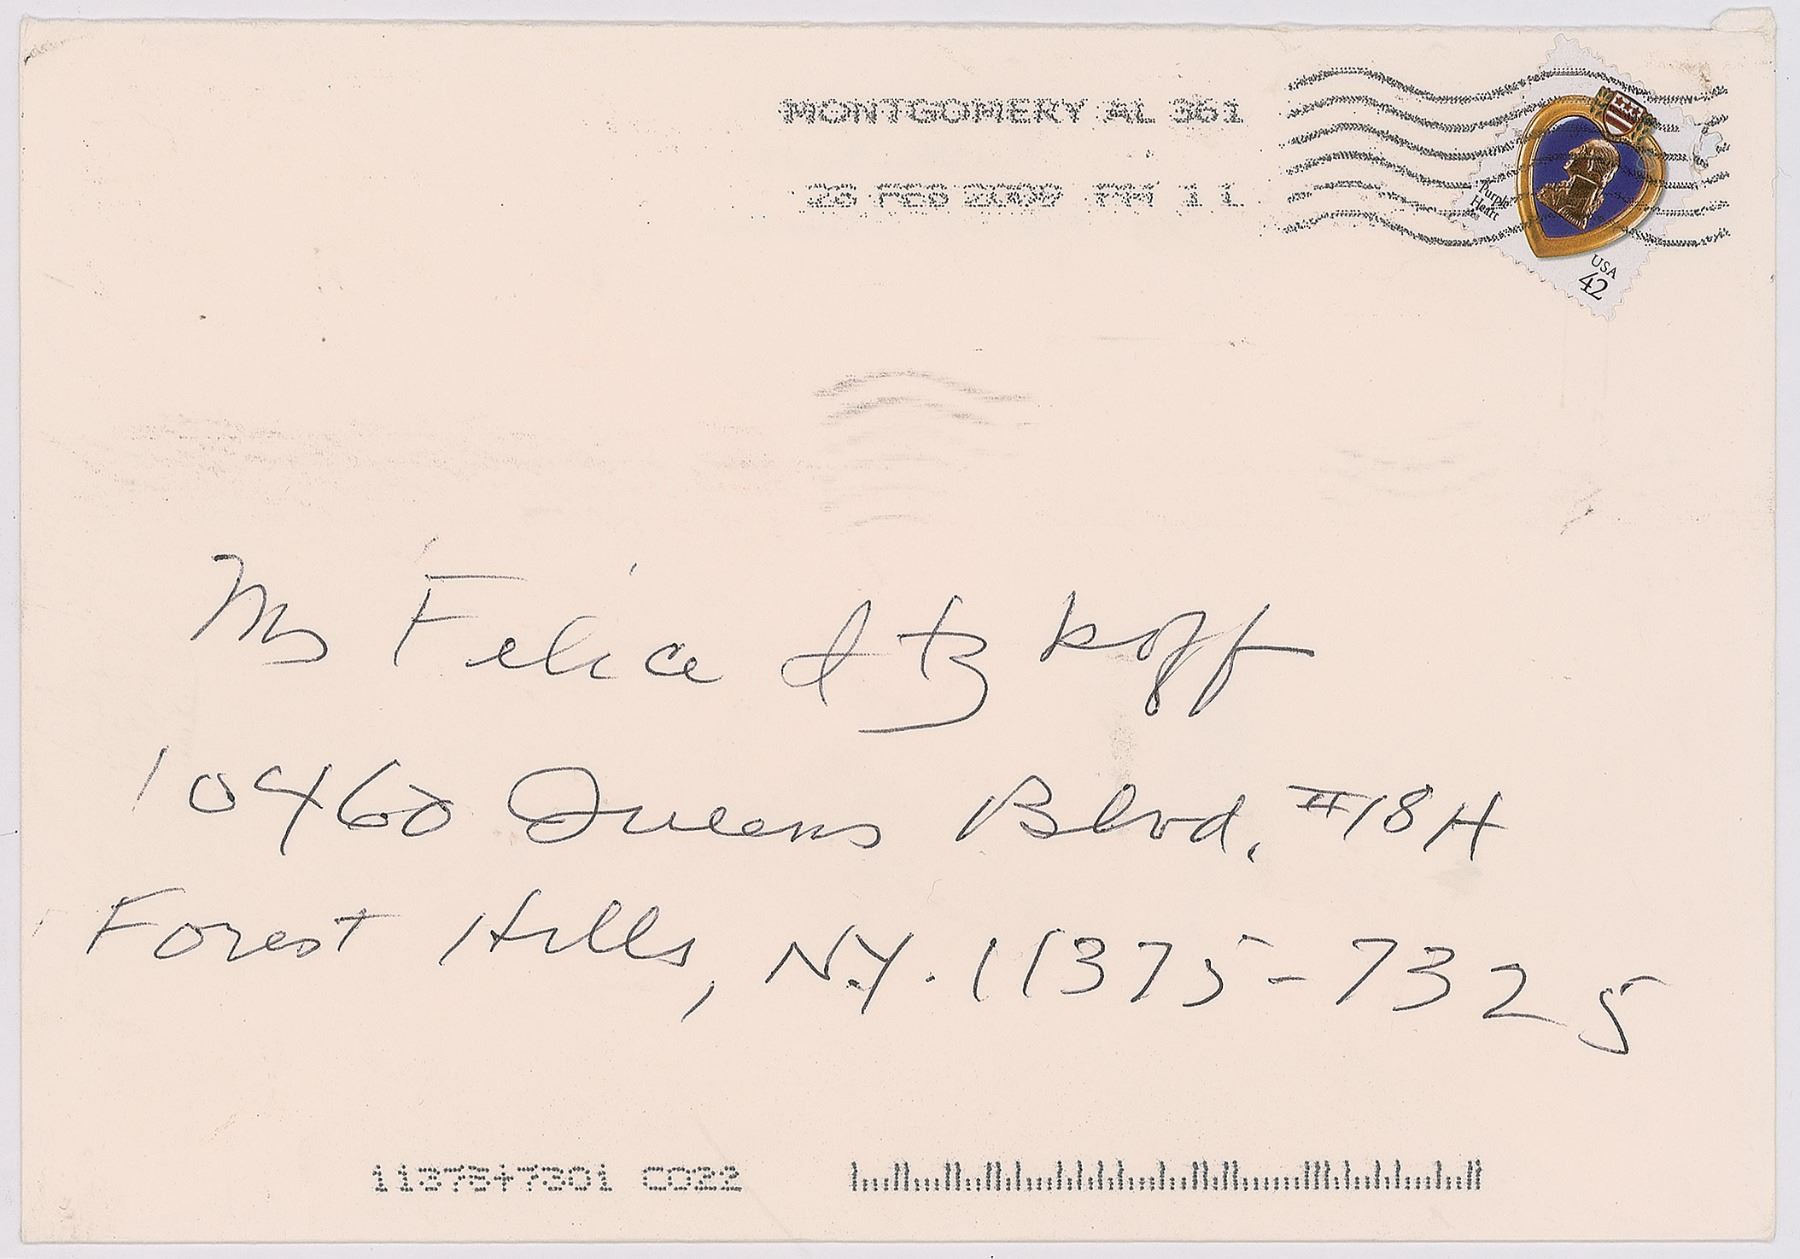 MONTGOMERY AL 361
26 FEB 2009 PM 1 L
Purple
Heart
USA
42
Ms Felice Itzkoff
10460 Queens Blvd. #18H
Forest Hills, N.Y. 11375-7325
11375+7301 C022